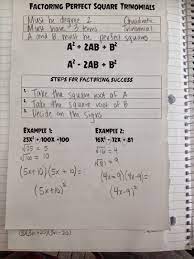 FACTORING PERFECT SQUARE TRINOMIALS
Must be degree 2 Quadratic
Must have 3 terms trinomial
A and B must be perfect squares
A² + 2AB + B²
A² - 2AB + B²
STEPS FOR FACTORING SUCCESS
1. Take the square root of A
2. Take the square root of B
3. Decide on the signs
EXAMPLE 1: EXAMPLE 2:
25X² + 100X + 100 16X² - 72X + 81
√25 = 5 √16 = 4
√100 = 10 √81 = 9
(5x+10)(5x+10) = (4x-9)(4x-9) =
(5x+10)² (4x-9)²